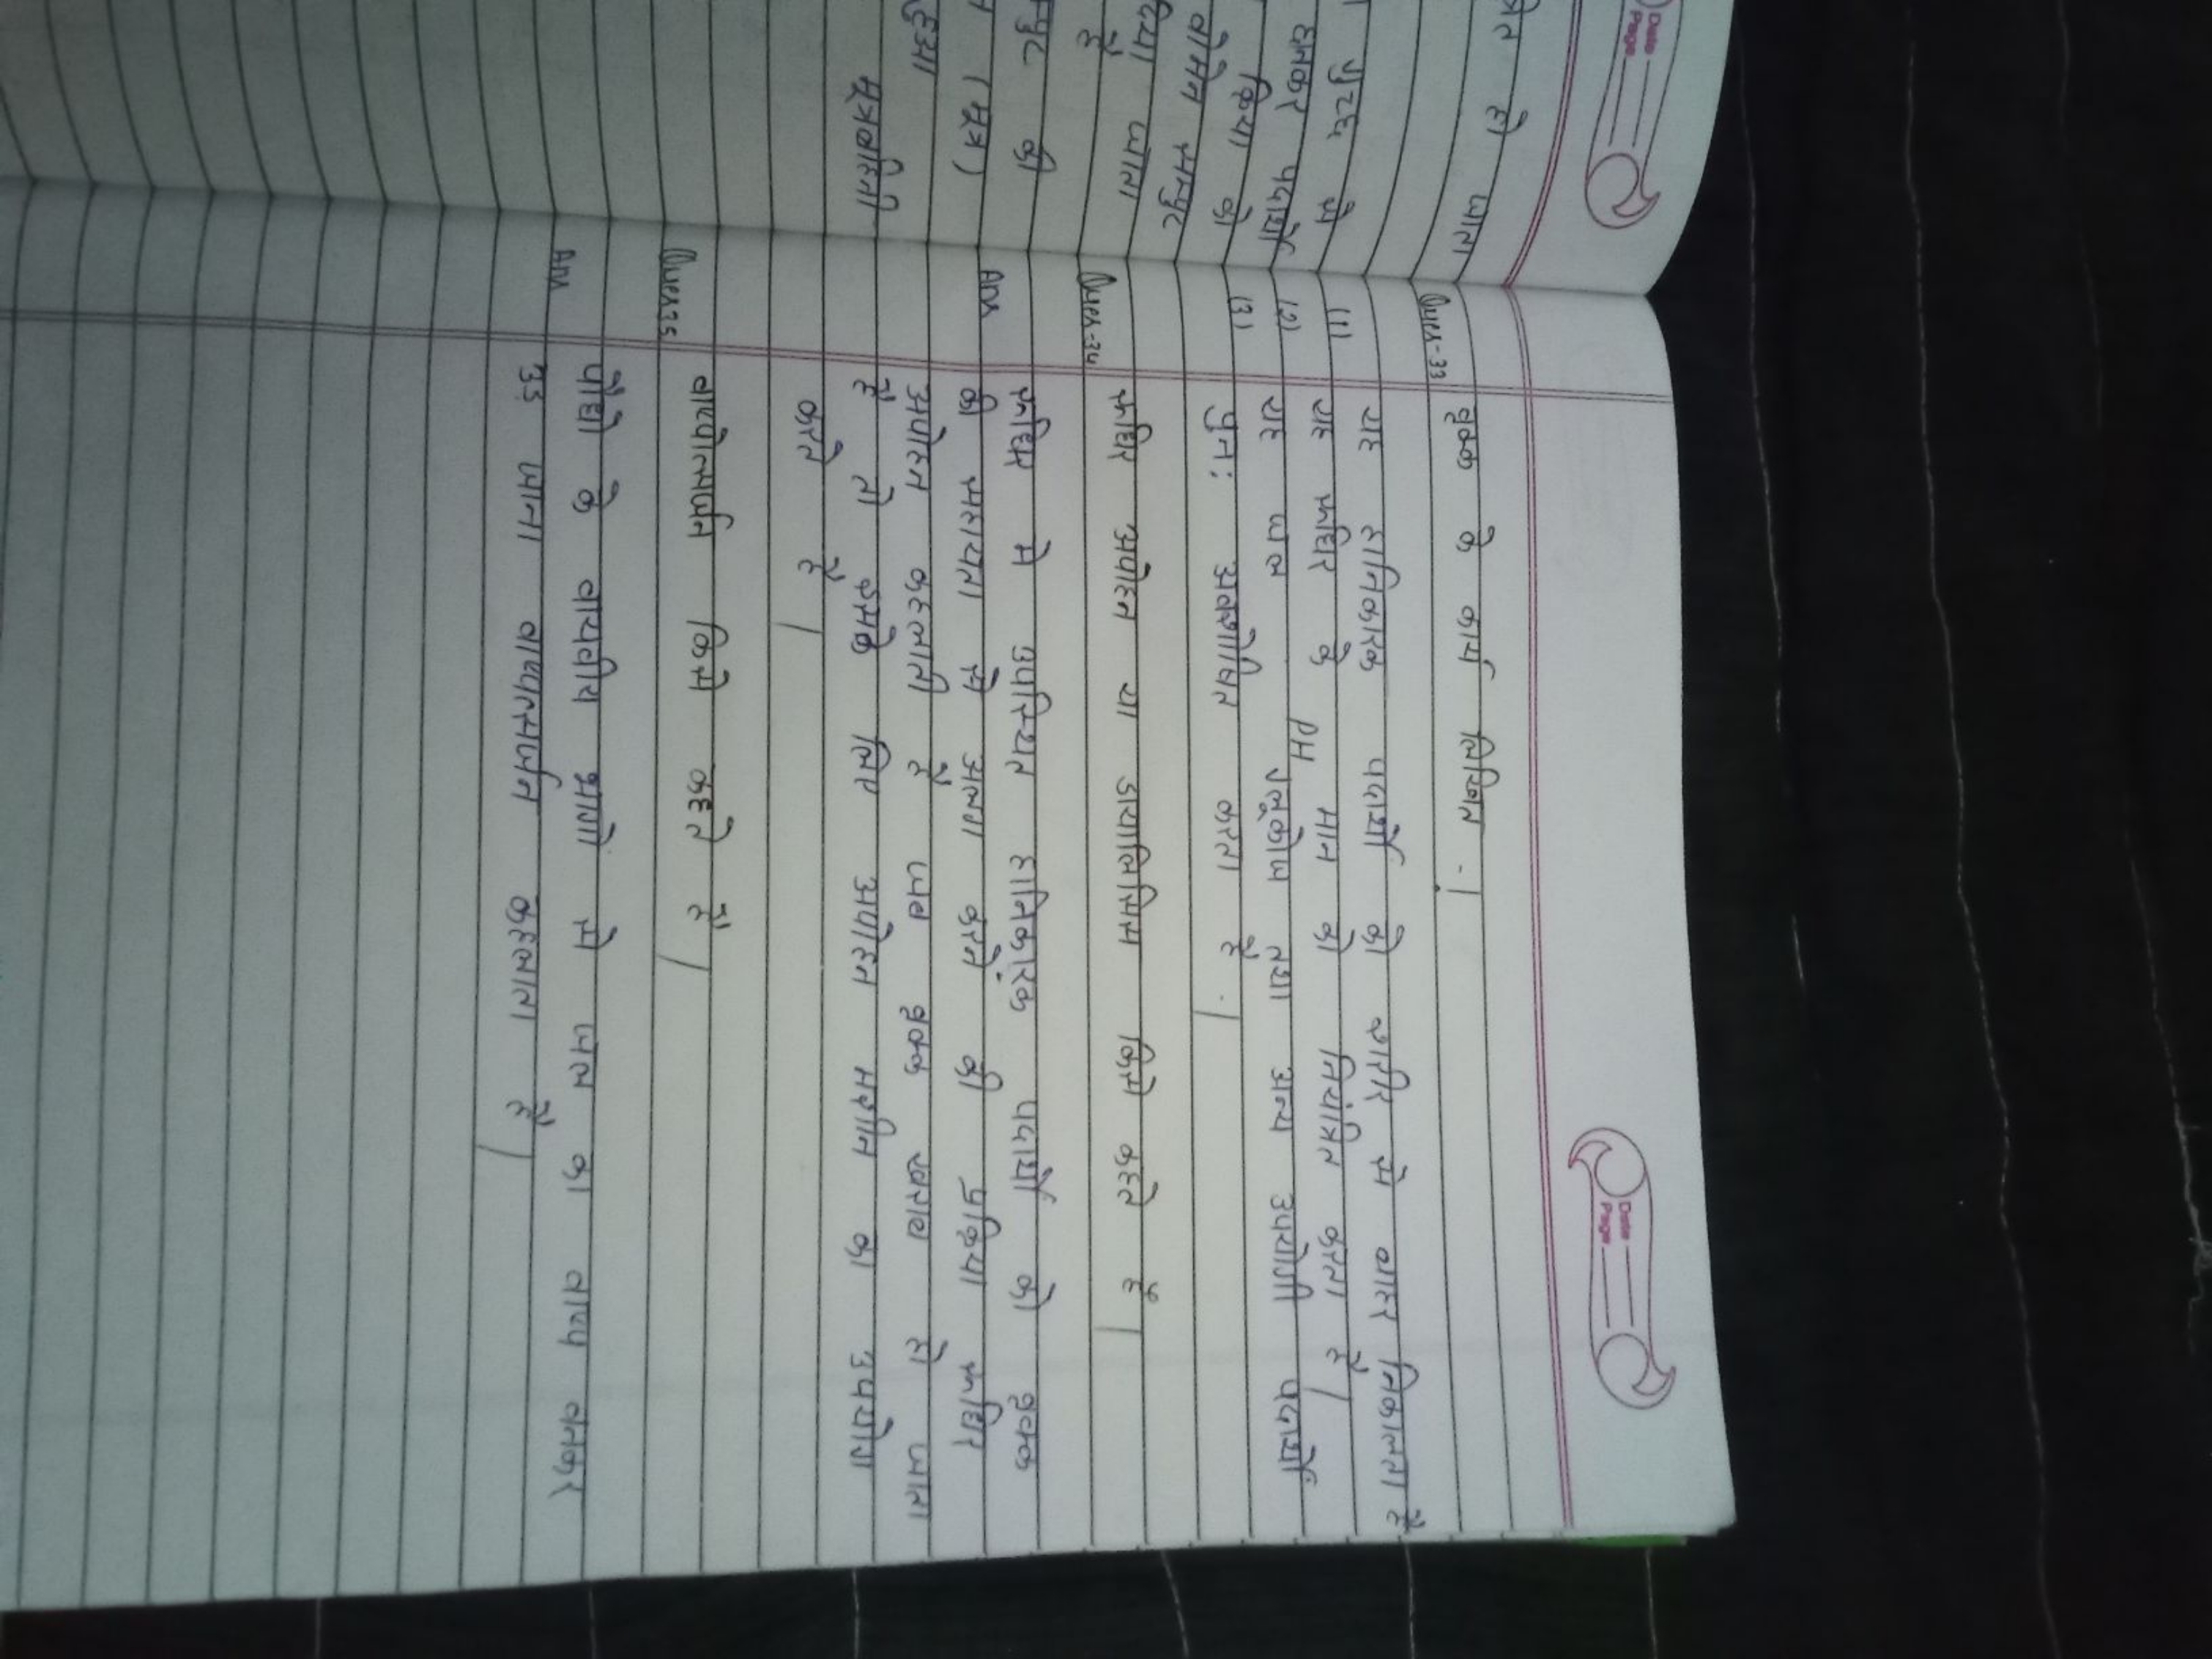 त हो जाता
पुटक से
छनकर पदार्थों
क्रिया को
बोमेन सम्पुट
जाता
है
पुट की
(मूत्र)
हुआ
मूत्रवाहिनी
Date
Page
Date
Page
Ques-33 वृक्क के कार्य लिखिन .|
(1) यह हानिकारक पदार्थों को शरीर से बाहर निकालता है
(2) यह रूधिर के PH मान को नियंत्रित करता है|
(3) यह जल ग्लूकोज तथा अन्य उपयोगी पदार्थों
पुन: अवशोषित करता है .|
Ques-34 रूधिर अपोहन या डायालिसिस किसे कहते है|
Ans रूधिर मे उपस्थित हानिकारक पदार्थों को वृक्क
की सहायता से अलग करने की प्रक्रिया रूधिर
अपोहन कहलाती है जब वृक्क खराब हो जाता
है तो इसके लिए अपोहन मशीन का उपयोग
करते है|
Ques35 वाष्पोत्सर्जन किसे कहते है|
Ans पौधो के वायवीय भागो से जल का वाष्प बनकर
उड़ जाना वाष्पत्सर्जन कहलाता है|